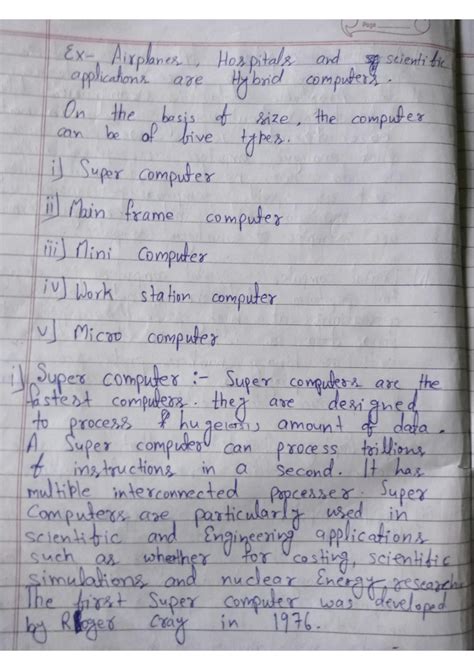 Page
Ex- Airplanes, Hospitals and scientific
applications are Hybrid computers.
On the basis of size, the computer
can be of five types.
i) Super computer
ii) Main frame computer
iii) Mini Computer
iv) Work station computer
v) Micro computer
i) Super computer :- Super computers are the
fastest computers. they are designed
to process huge amount of data.
A Super computer can process trillions
of instructions in a second. It has
multiple interconnected popcesser. Super
Computers are particularly used in
scientific and Engineering applications
such as whether for costing, scientific
simulations and nuclear Energy research
The first Super computer was developed
by Roger Cray in 1976.